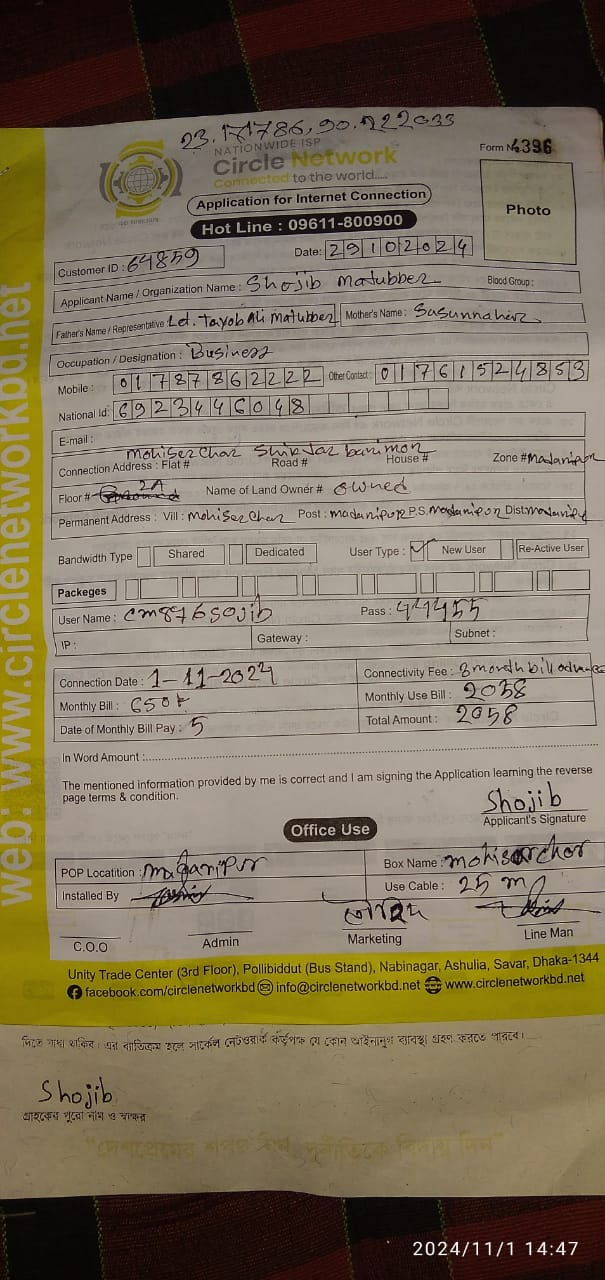 23.171786, 90.222033
NATIONWIDE ISP
Circle Network
Connected to the world.....
Form No 4396
Application for Internet Connection
Hot Line : 09611-800900
Photo
Customer ID : 64859
Date: 29102024
Applicant Name / Organization Name : Shojib matubber
Blood Group :
Father's Name / Representative: Let. Tayob Ali Matubber
Mother's Name :
Occupation / Designation : Business
Mobile : 01787862222
Other Contact : 01761524853
National Id: 6923446048
E-mail :
Connection Address : Flat #
Road #
House #
Zone #
Floor # 2A
Name of Land Owner # owned
Permanent Address : Vill : Mohiser Char Post : madaripur P.S. Madaripur Dist: madaripur
Bandwidth Type
Shared
Dedicated
User Type :
New User
Re-Active User
Packeges
User Name : cm876sojib
Pass :
IP :
Gateway :
Subnet :
Connection Date : 1-11-2024
Connectivity Fee : 3 month bill advance
Monthly Bill :
Monthly Use Bill : 2058
Date of Monthly Bill Pay : 5
Total Amount : 2058
In Word Amount :
The mentioned information provided by me is correct and I am signing the Application learning the reverse
page terms & condition.
Shojib
Applicant's Signature
Office Use
POP Locatition : Madaripur
Box Name : mohiserchor
Installed By
Use Cable : 25 m
C.O.O
Admin
Marketing
Line Man
Unity Trade Center (3rd Floor), Pollibiddut (Bus Stand), Nabinagar, Ashulia, Savar, Dhaka-1344
facebook.com/circlenetworkbd info@circlenetworkbd.net www.circlenetworkbd.net
web: www.circlenetworkbd.net
দিতে বাধ্য থাকিব। এর ব্যতিক্রম হলে সার্কেল নেটওয়ার্ক কর্তৃপক্ষ যে কোন আইনানুগ ব্যবস্থা গ্রহণ করতে পারবে।
Shojib
গ্রাহকের পুরো নাম ও স্বাক্ষর
"দেশপ্রেমের শপথ নিন, দুর্নীতিকে বিদায় দিন"
2024/11/1 14:47